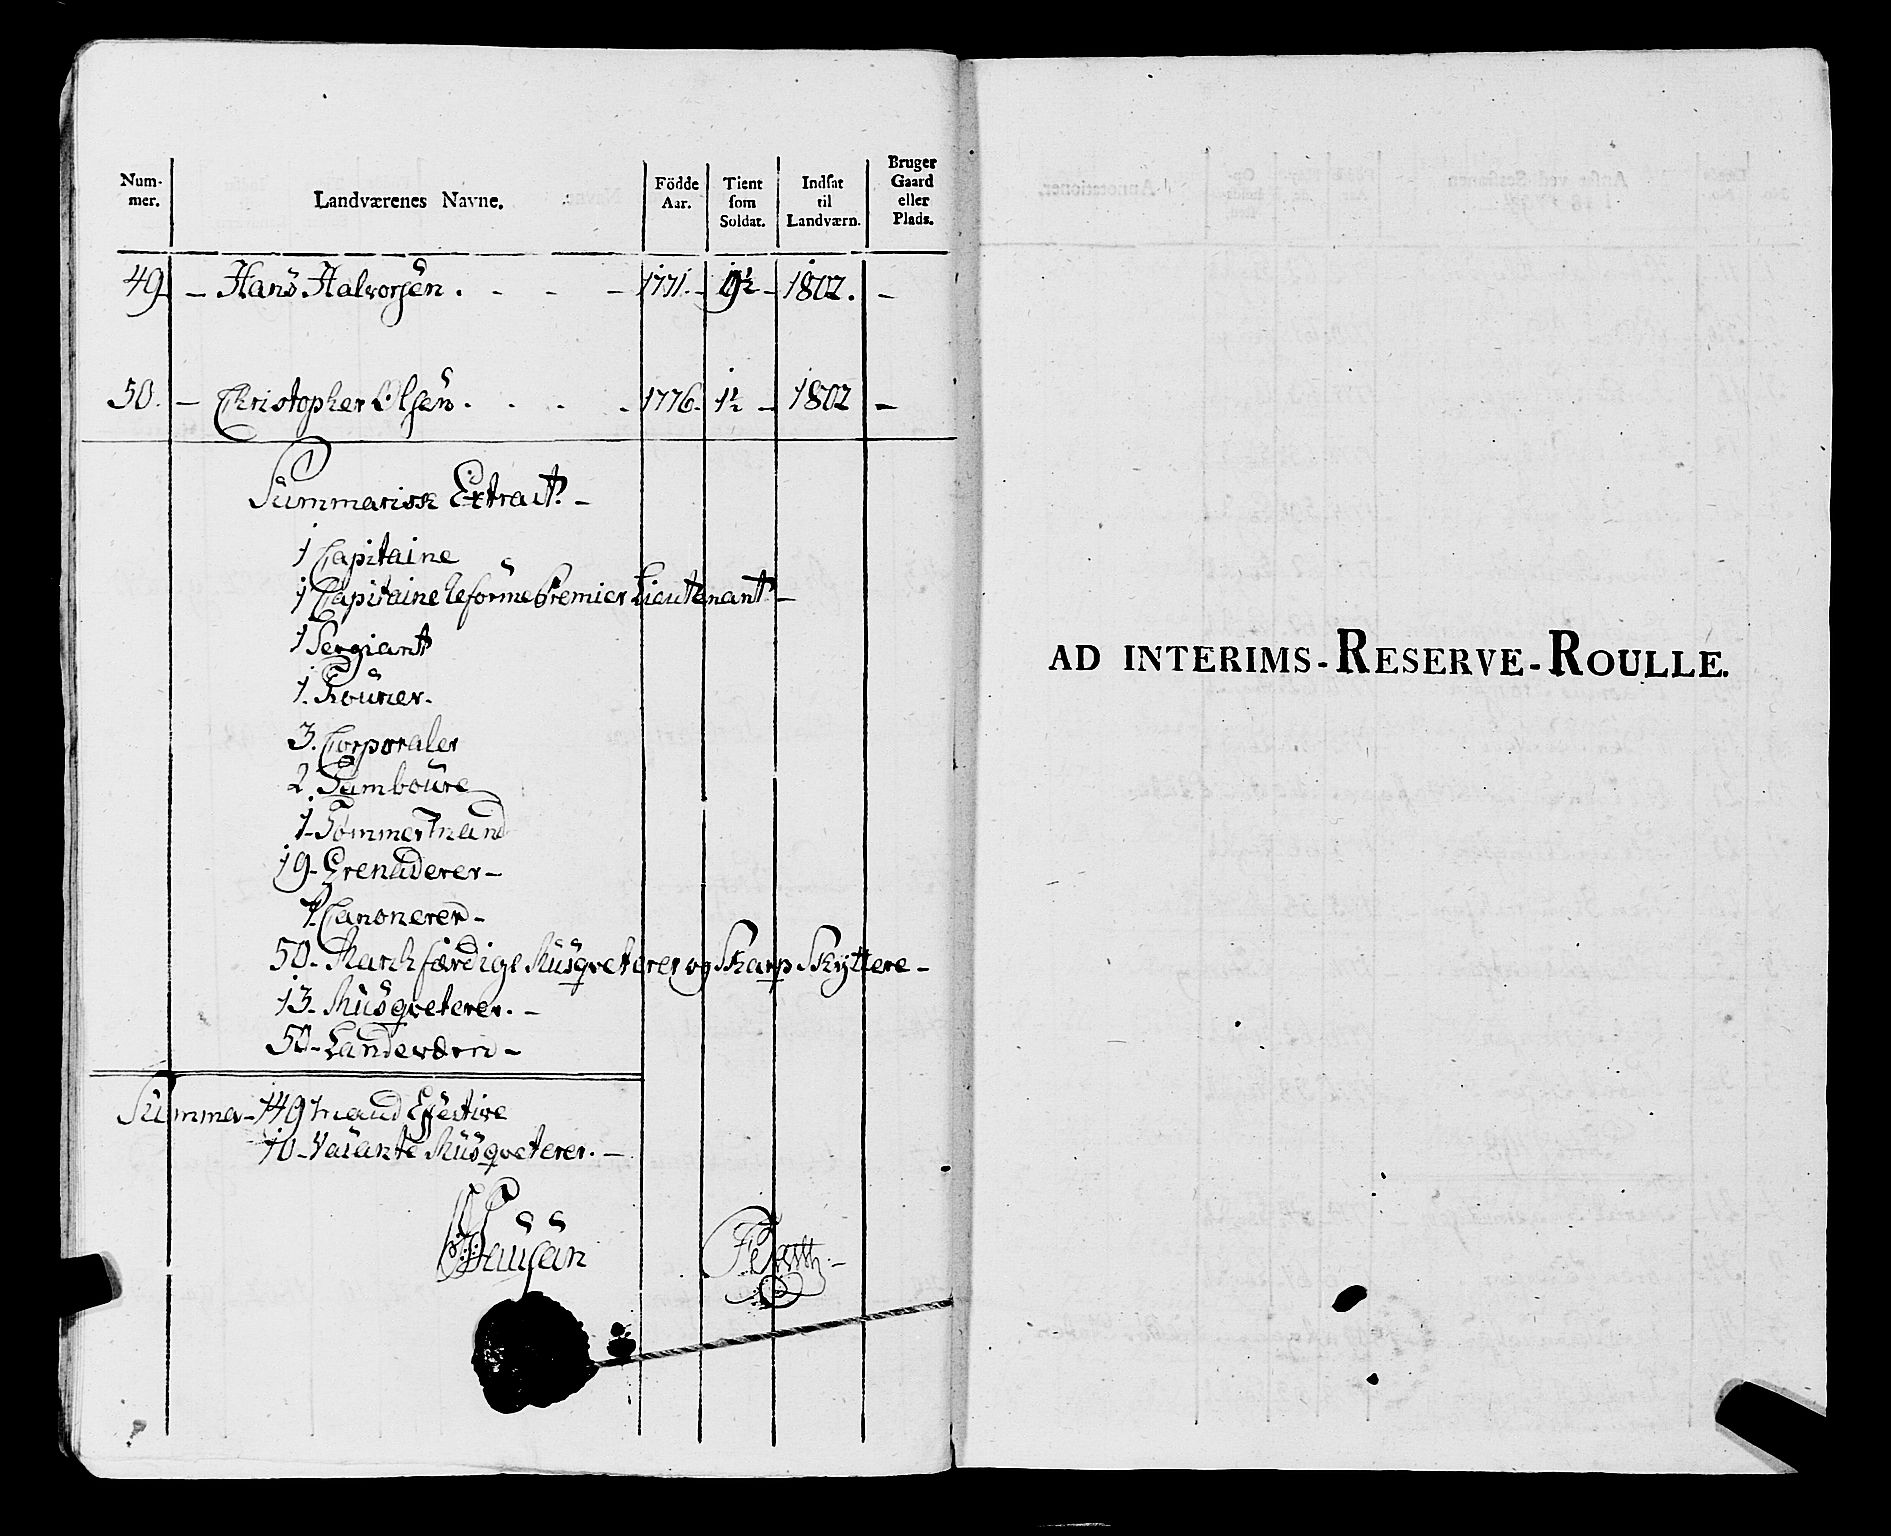 Num-
mer.
Landværenes Navne.
Födde
Aar.
Tient
som
Soldat.
Indsat
til
Landværn.
Bruger
Gaard
eller
Plads.
49 - Hans Halvorsen . - - - 1771. - 9½ - 1802. -
50. - Christopher Olsen . . . . 1776. 1½ - 1802 -
Summarisk Extract. -
1 Capitaine
1 Capitaine Reforme Premier Lieutenant -
1 Sergiant
1. Fourier.
3. Corporaler
2. Tamboure
1- Tömmermand
19- Grenaderer -
7. Canonerer -
50- Marchfærdige Musqveterer og Skarp Skyttere -
13- Musqveterer. -
50- Landeværn -
Summa - 149 mand Effective
10- Vacante Musqveterer. -
AD INTERIMS-RESERVE-ROULLE.